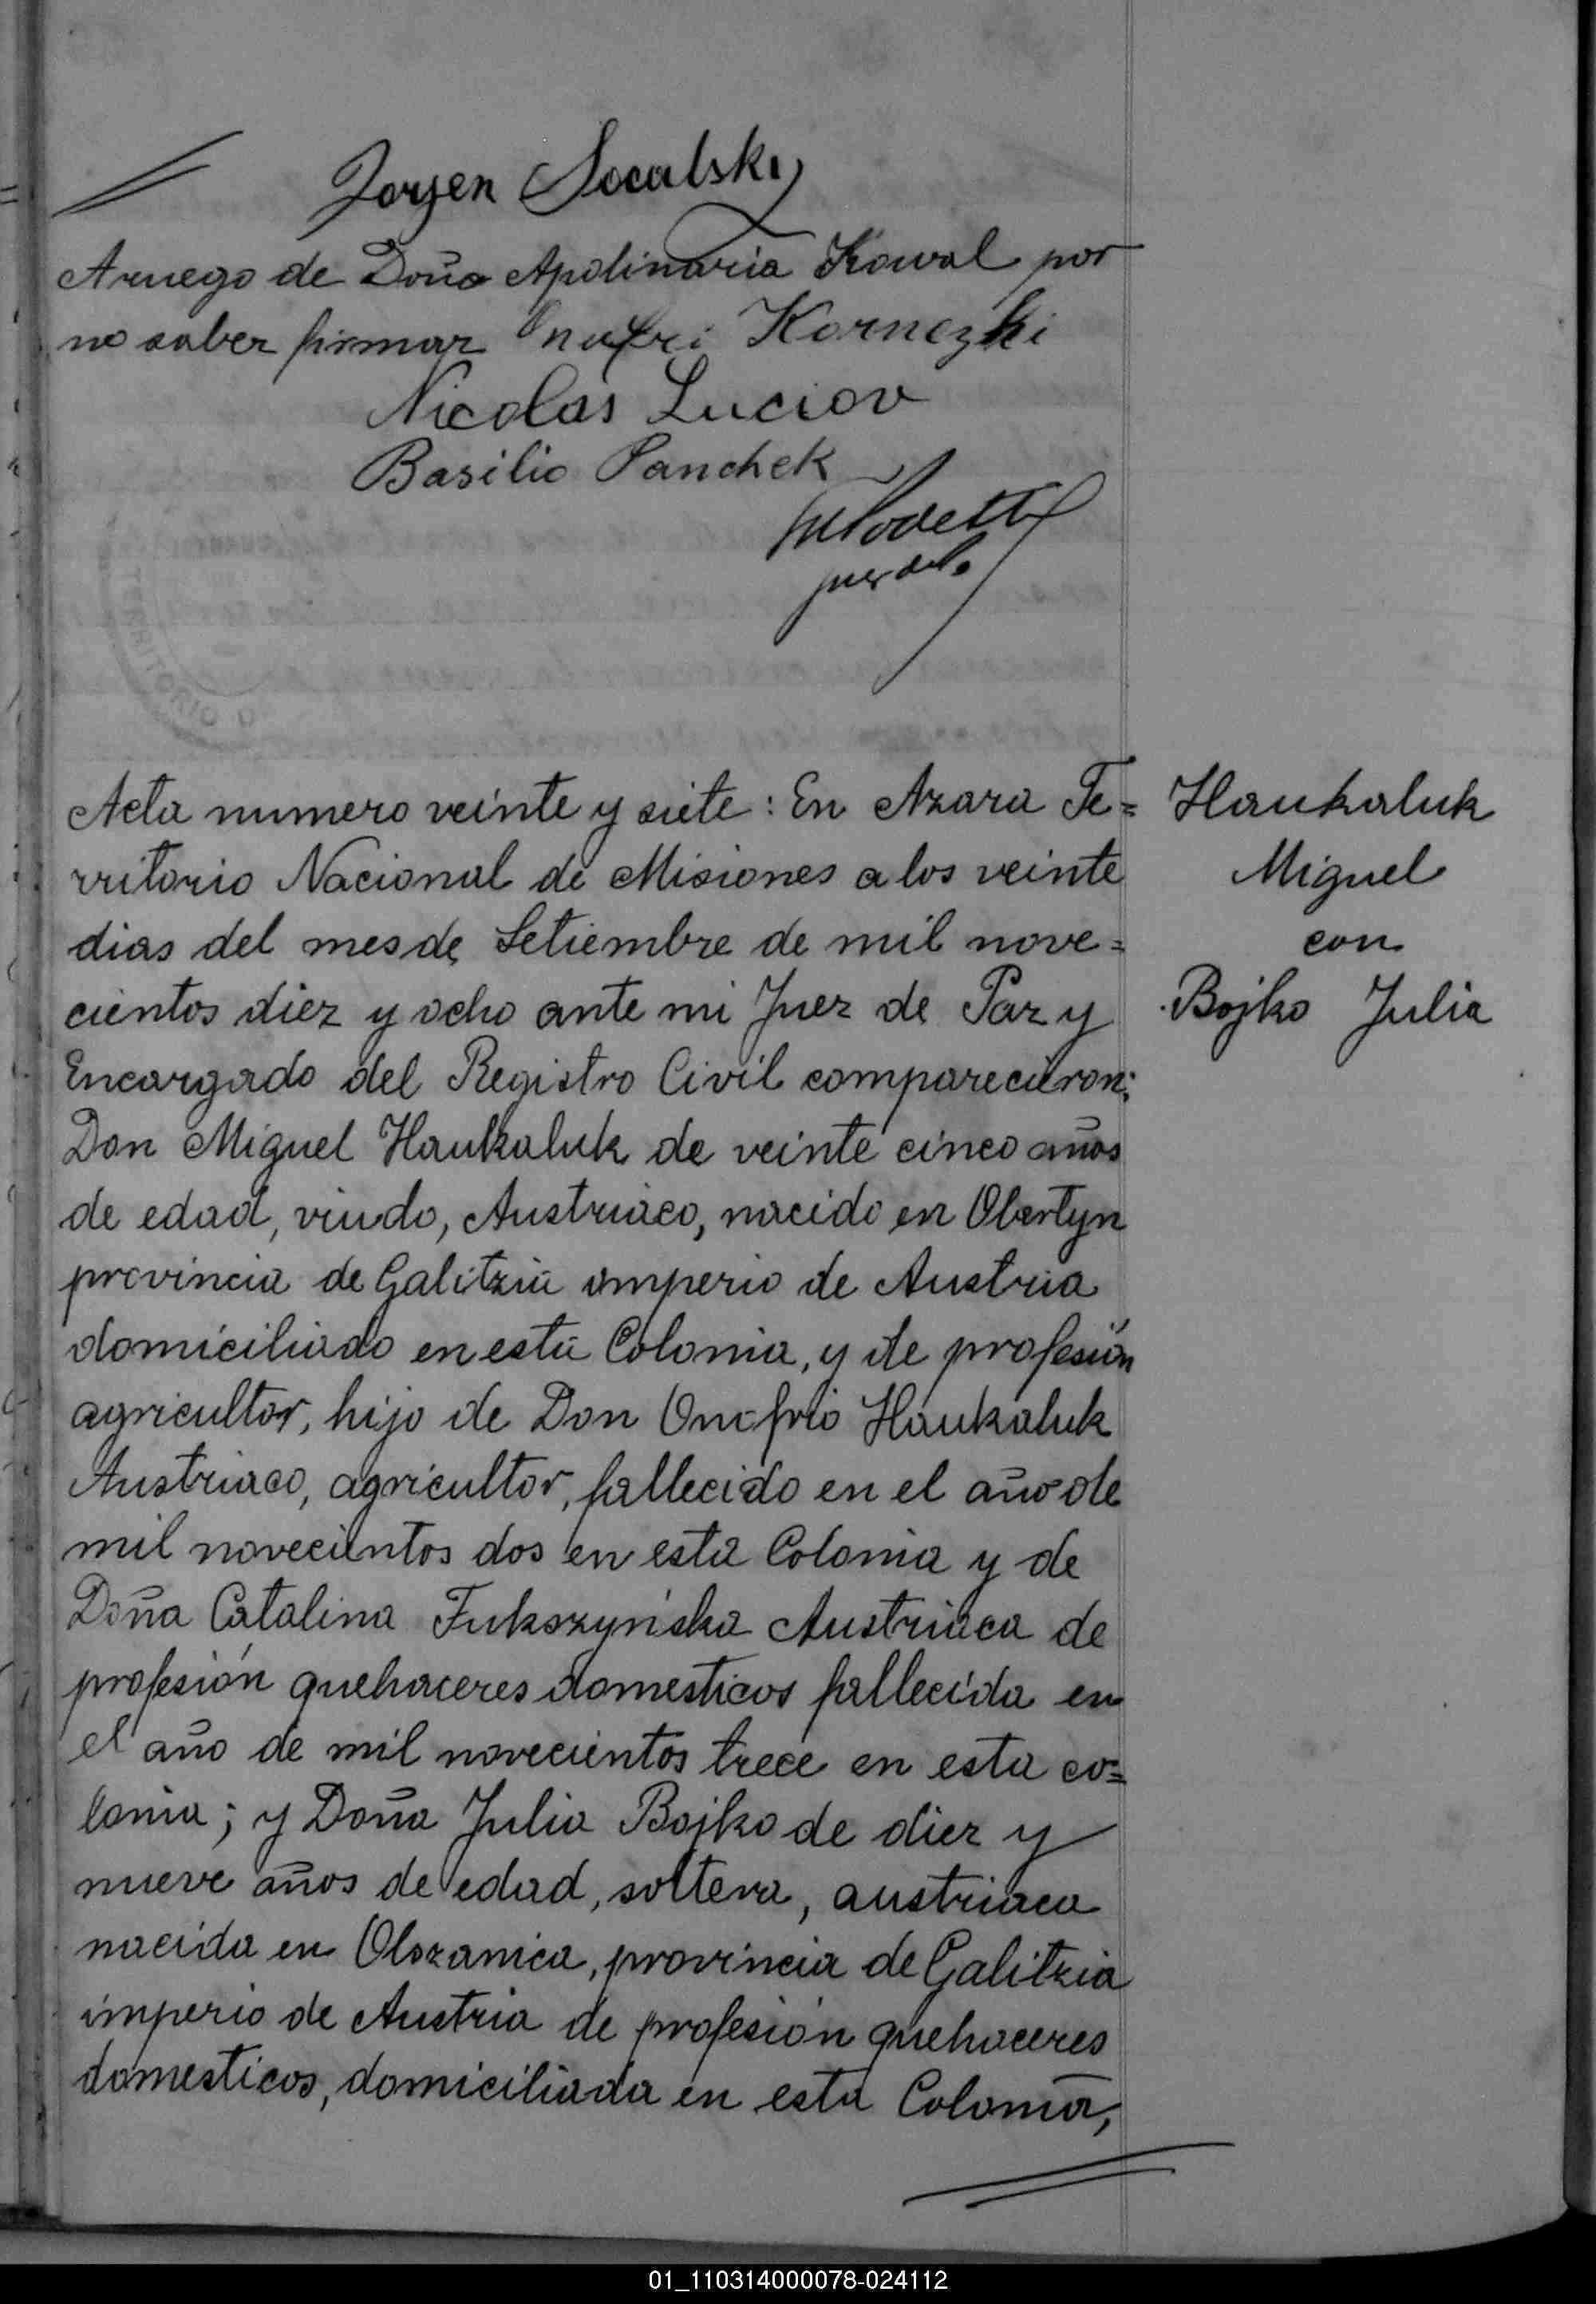 Jorgen Socalsky
Aruego de Doña Apolinaria Kowal por
no saber firmar Onufri Kornezki
Nicolás Luciov
Basilio Panchek
Acta numero veinte y siete: En Azara Te=
rritorio Nacional de Misiones a los veinte
dias del mes de Setiembre de mil nove=
cientos diez y ocho ante mi Juez de Paz y
Encargado del Registro Civil comparecieron:
Don Miguel Haukaluk de veinte cinco años
de edad, viudo, Austriaco, nacido en Obertyn
provincia de Galitzia imperio de Austria
domiciliado en esta Colonia, y de profesión
agricultor, hijo de Don Onofrio Haukaluk
Austriaco, agricultor, fallecido en el año de
mil novecientos dos en esta Colonia y de
Doña Catalina Fukszyńska Austriaca de
profesión quehaceres domesticos fallecida en
el año de mil novecientos trece en esta co=
lonia; y Doña Julia Bojko de diez y
nueve años de edad, soltera, austriaca
nacida en Olszanica, provincia de Galitzia
imperio de Austria de profesión quehaceres
domesticos, domiciliada en esta Colonia,
Haukaluk
Miguel
con
Bojko Julia
01_110314000078-024112